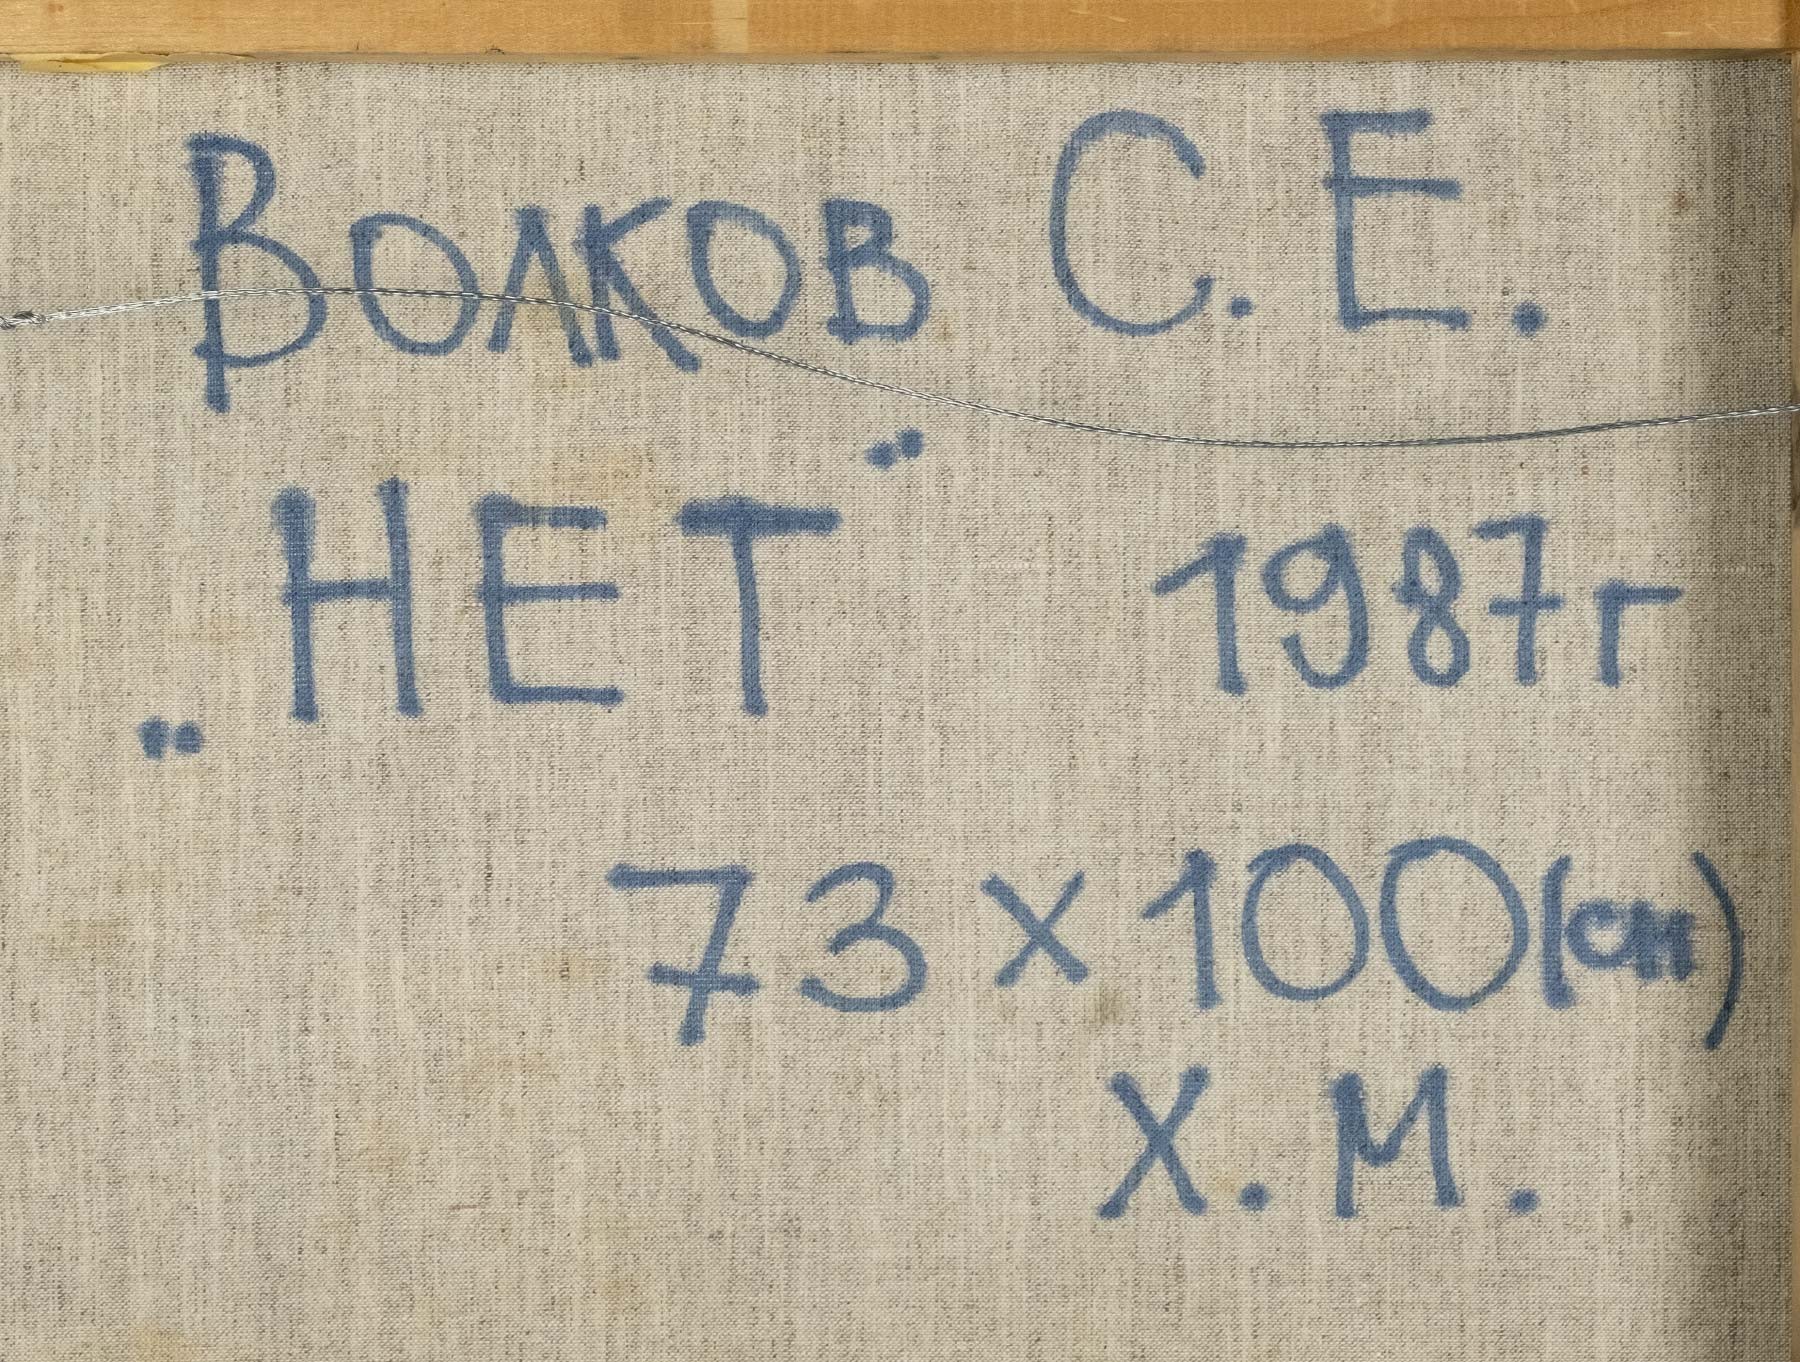 Волков С. Е.
„НЕТ“ 1987г
73×100(см)
Х. М.